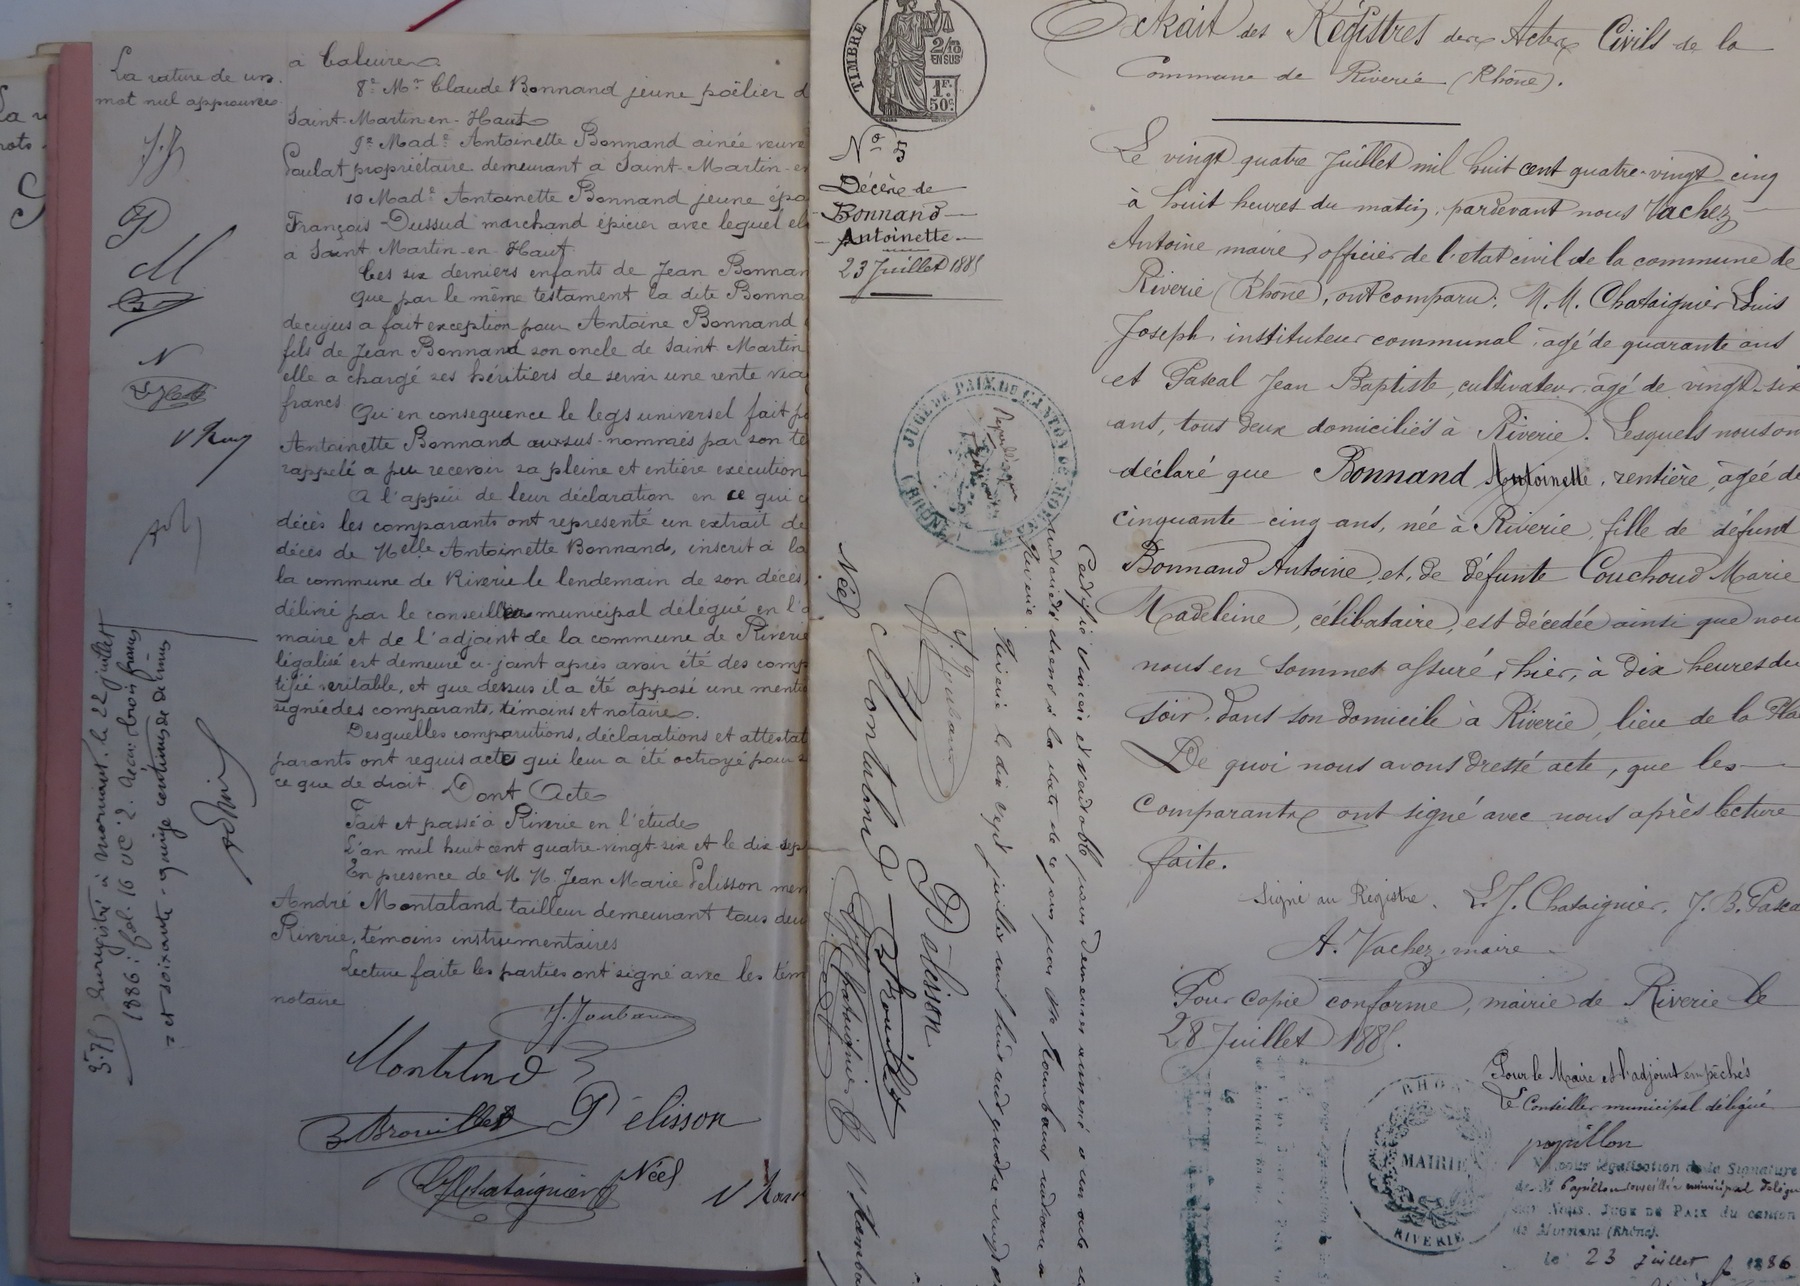 La rature de un
mot nul approuvée
à Caluire.
8° Mr Claude Bonnand jeune poëlier d
Saint-Martin-en-Haut
9° Made Antoinette Bonnand ainée veuve
Goulat propriétaire demeurant à Saint-Martin-en
10 Made Antoinette Bonnand jeune épo
François Dussud marchand épicier avec lequel el
à Saint Martin-en-Haut
Ces six derniers enfants de Jean Bonnan
que par le même testament la dite Bonna
decujus a fait exception pour Antoine Bonnand
fils de Jean Bonnand son oncle de Saint Martin
elle a chargé ses héritiers de servir une rente via
francs.
Qu'en consequence le legs universel fait p
Antoinette Bonnand aux sus-nommés par son te
rappelé a pu recevoir sa pleine et entière exécution
A l'appui de leur déclaration en ce qui c
décès les comparants ont representé un extrait de
décès de Melle Antoinette Bonnand, inscrit à la
la commune de Riverie le lendemain de son décès,
délivré par le conseiller municipal délégué en l'a
maire et de l'adjoint de la commune de Riverie
légalisé est demeuré ci-joint après avoir été des comp
tifié veritable, et que dessus il a été apposé une mentio
signée des comparants, témoins et notaire.
Desquelles comparutions, déclarations et attestat
parants ont requis acte qui leur a été octroyé pour s
ce que de droit. Dont Acte
Fait et passé à Riverie en l'étude
L'an mil huit cent quatre-vingt six et le dix-sep
En presence de M. M. Jean Marie Pelisson men
André Montaland tailleur demeurant tous deu
Riverie, témoins instrumentaires
Lecture faite les parties ont signé avec les tém
notaire
J. Joubanu
Montaland
B Brouillet Pélisson
LJ Chataignier Néel
Enregistré à Mornant, le 22 juillet
1886: fol. 16 vc 2. Reçu trois francs
et soixante-quinze centimes décimes
TIMBRE
2/10
EN SUS
1F.
50c.
No 5
Décès de
Bonnand
Antoinette
23 Juillet 1885
JUGE DE PAIX DU CANTON DE MORNANT
(RHÔNE)
Néel
Montaland
J. Joubanu
Pélisson
B Brouillet
LJ Chataignier
Certifié sincère et véritable pour demeurer annexé à un acte de
Riverie le dix sept juillet mil huit cent quatre vingt
Extrait des Régistres des Actes Civils de la
Commune de Riverie (Rhône).
Le vingt quatre Juillet mil huit cent quatre-vingt-cinq
à huit heures du matin, pardevant nous Vachez
Antoine maire, officier de l'etat civil de la commune de
Riverie (Rhône), ont comparu: M. M. Chataignier Louis
Joseph, instituteur communal, agé de quarante ans
et Pascal Jean Baptiste, cultivateur, âgé de vingt-six
ans, tous deux domiciliés à Riverie. Lesquels nous on
déclaré que Bonnand Antoinette, rentière, âgée de
cinquante-cinq ans, née à Riverie, fille de défunt
Bonnand Antoine, et, de défunte Couchoud Marie
Madeleine, célibataire, est décédée ainsi que nou
nous en sommes assuré, hier, à dix heures du
soir, dans son domicile à Riverie, lieu de la Pla
De quoi nous avons dressé acte, que les
comparants ont signé avec nous après lecture
faite.
Signé au Régistre. L. J. Chataignier. J. B. Pasca
A. Vachez, maire
Pour copie conforme, mairie de Riverie le
28 Juillet 1885.
Pour le Maire et l'adjoint empêchés
Le Conseiller municipal délégué
papillon
RHÔNE
MAIRIE
RIVERIE
Vu pour légalisation de la Signature
de M Papillon conseiller municipal délégu
par Nous, JUGE DE PAIX du canton
de Mornant (Rhône).
le 23 juillet 1886